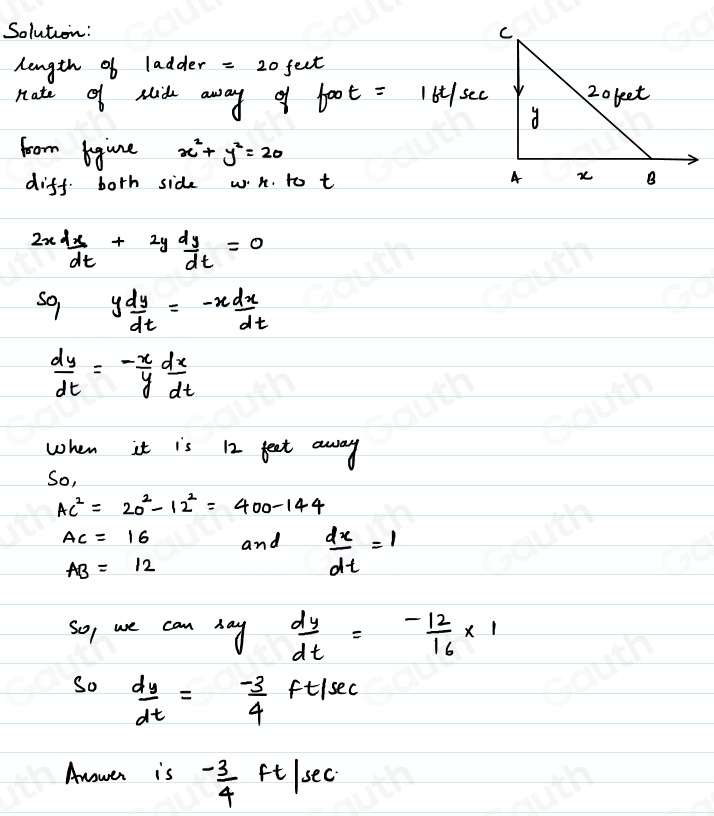 Solution:
length of ladder = 20 feet
rate of slide away of foot = 1 ft/sec
from figure x²+ y²= 20
diff. both side w.r. to t
2x dx/dt + 2y dy/dt = 0
So, y dy/dt = -x dx/dt
dy/dt = -x/y dx/dt
When it is 12 feet away
So,
AC² = 20² - 12² = 400-144
AC = 16 and dx/dt = 1
AB = 12
So, we can say dy/dt = -12/16 × 1
So dy/dt = -3/4 ft/sec
Answer is -3/4 ft/sec.
C
20 feet
y
A x B